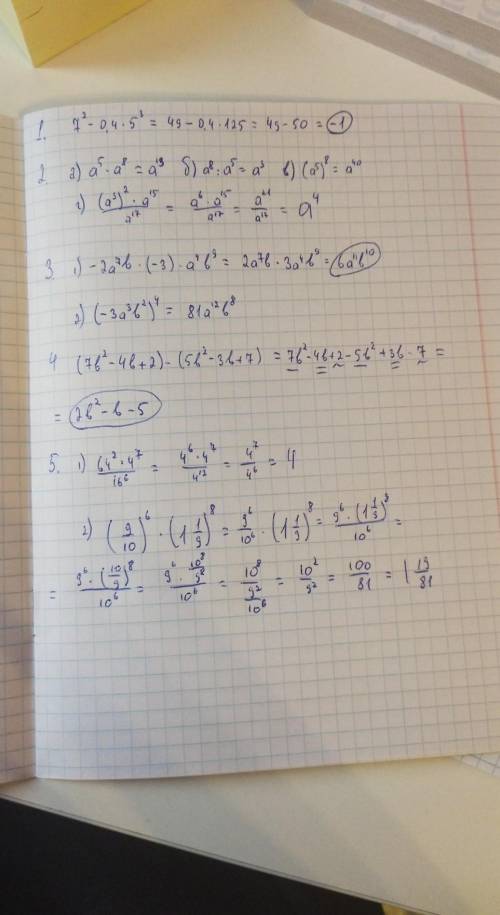 1. 7² - 0,4 · 5³ = 49 - 0,4 · 125 = 49 - 50 = -1
2. а) a⁵ · a⁸ = a¹³ б) a⁸ : a⁵ = a³ в) (a⁵)⁸ = a⁴⁰
г) (a³)² · a¹⁵ / a¹⁷ = a⁶ · a¹⁵ / a¹⁷ = a²¹ / a¹⁷ = a⁴
3. 1) -2a⁷b · (-3) · a⁴b⁹ = 2a⁷b · 3a⁴b⁹ = 6a¹¹b¹⁰
2) (-3a³b²)⁴ = 81a¹²b⁸
4 (7b² - 4b + 2) - (5b² - 3b + 7) = 7b² - 4b + 2 - 5b² + 3b - 7 =
= 2b² - b - 5
5. 1) 64² · 4⁷ / 16⁶ = 4⁶ · 4⁷ / 4¹² = 4⁷ / 4⁶ = 4
2) (9/10)⁶ · (1 1/9)⁸ = 9⁶/10⁶ · (1 1/9)⁸ = 9⁶ · (1 1/9)⁸ / 10⁶ =
= 9⁶ · (10/9)⁸ / 10⁶ = 9⁶ · 10⁸/9⁸ / 10⁶ = 10⁸/9² / 10⁶ = 10²/9² = 100/81 = 1 19/81